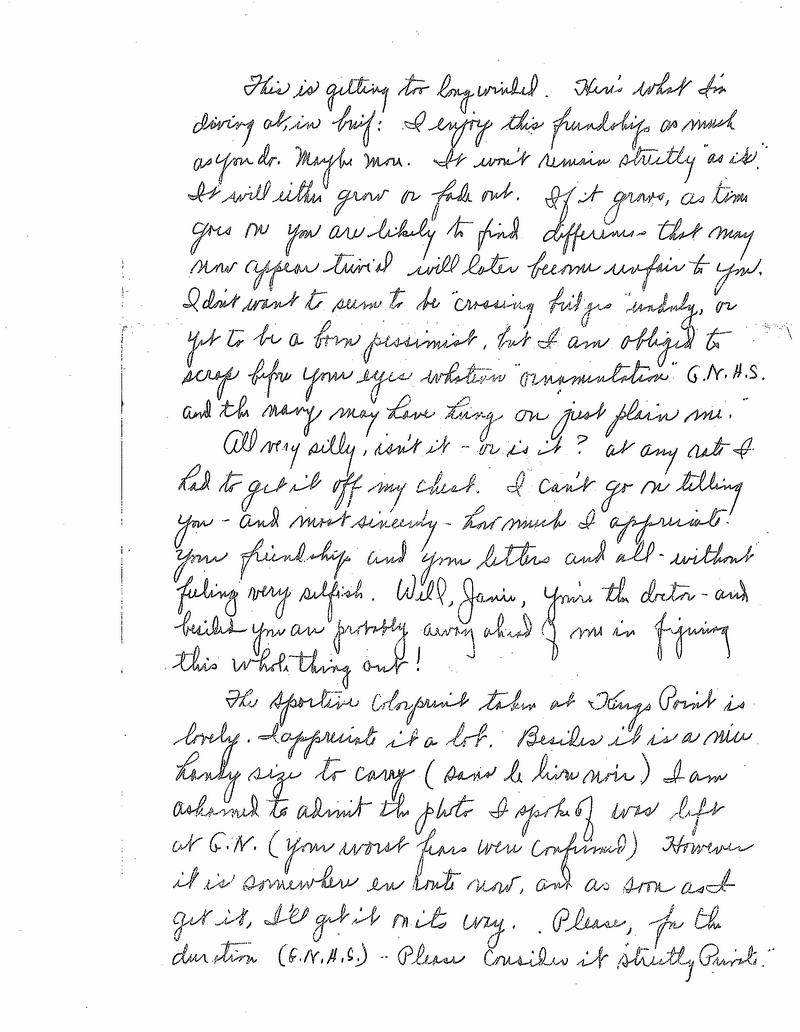 This is getting too long winded. Here's what I'm
driving at, in brief: I enjoy this friendship as much
as you do. Maybe more. It won't remain strictly "as is".
It will either grow or fade out. If it grows, as time
goes on you are likely to find differences that may
now appear trivial will later become unfair to you.
I don't want to seem to be "crossing bridges" unduly, or
yet to be a born pessimist, but I am obliged to
scrap before your eyes whatever "ornamentation" G.N.H.S.
and the navy may have hung on "just plain me."
All very silly, isn't it - or is it? At any rate I
had to get it off my chest. I can't go on telling
you - and most sincerely - how much I appreciate
your friendship and your letters and all - without
feeling very selfish. Well, Janie, you're the doctor - and
besides you are probably away ahead of me in figuring
this whole thing out!
The sportive Colorprint taken at Kings Point is
lovely. I appreciate it a lot. Besides it is a nice
handy size to carry (sans le livre noir) I am
ashamed to admit the photo I spoke of was left
at G.N. (your worst fears were confirmed) However
it is somewhere en route now, and as soon as I
get it, I'll get it on its way. Please, for the
duration (G.N.H.S.) - Please consider it "strictly Private."